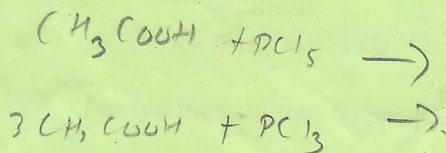 CH₃COOH + PCl₅ →
3 CH₃COOH + PCl₃ →